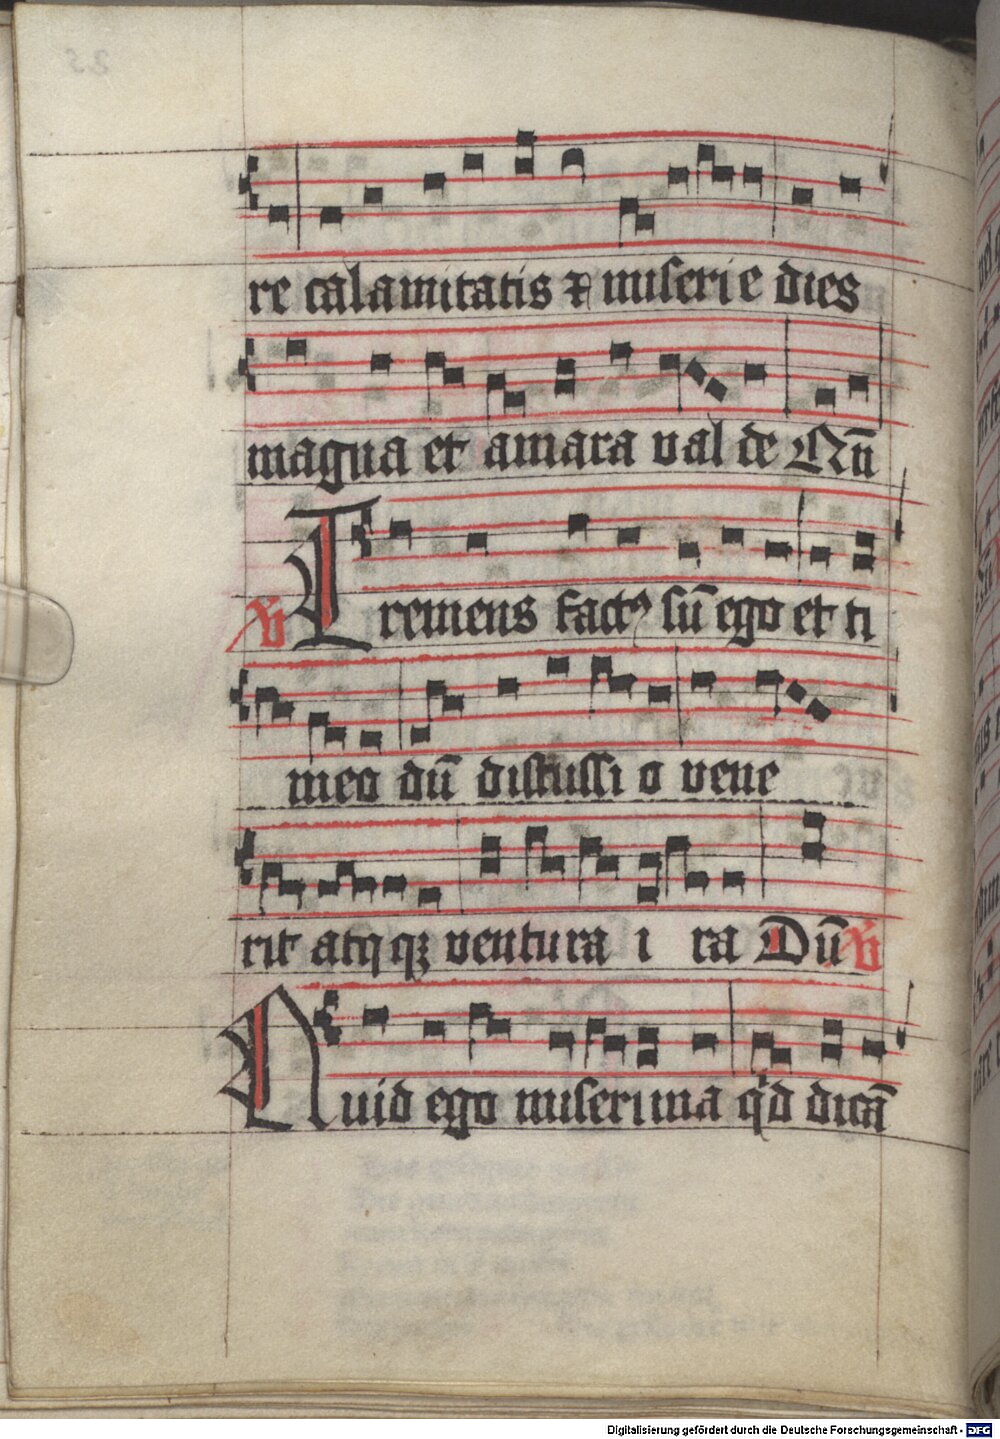 re calamitatis ⁊ miserie dies
magna et amara valde Qn̄
V̄ Tremens factꝰ sū ego et ti
meo dū discussio vene
rit atqꝫ ventura ira Dū V̄
Quid ego miserima qͥd dicā
Digitalisierung gefördert durch die Deutsche Forschungsgemeinschaft - DFG